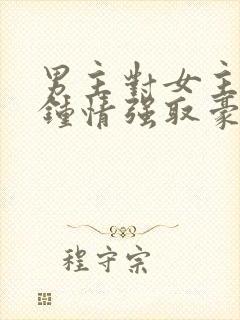 男主對女主
鍾情强取豪
程守宗